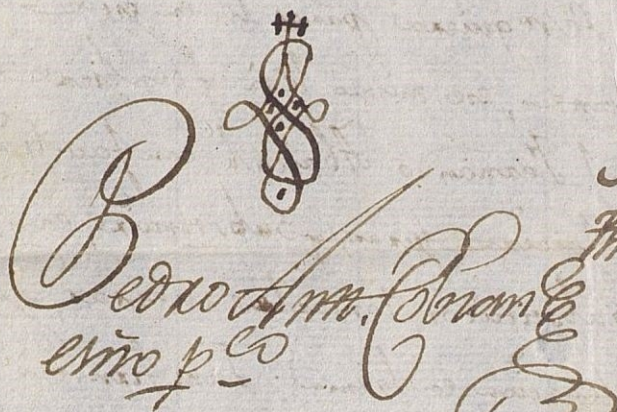 Pedro Antt. Cobian
essno pco